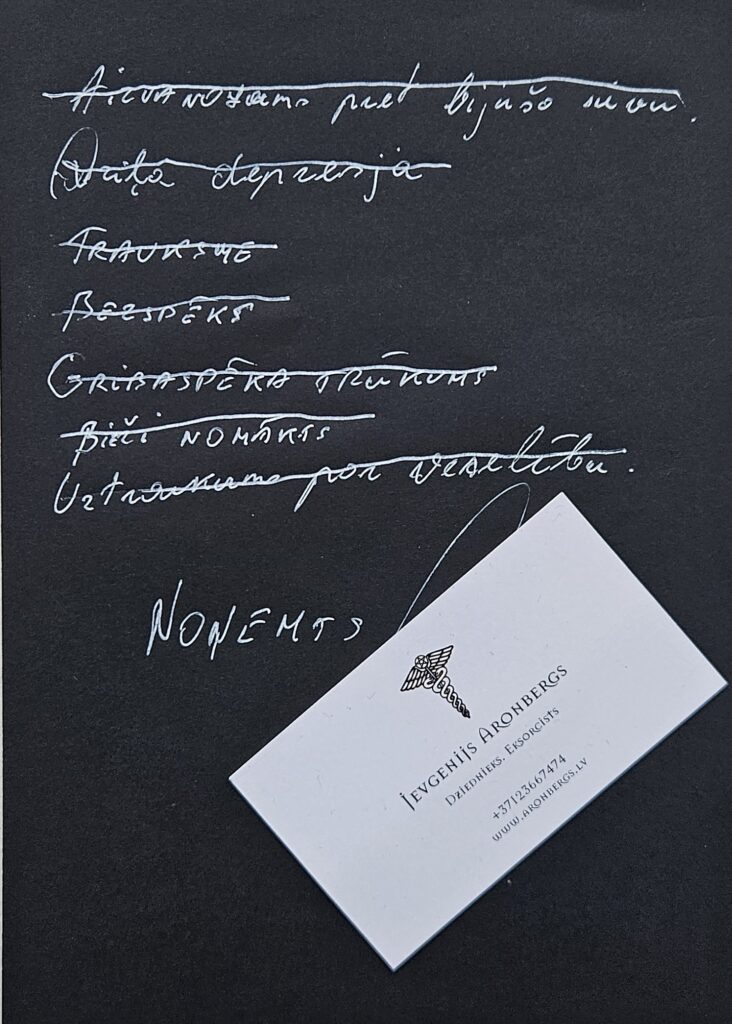 Aizvainojums pret bijušo sievu.
Dziļa depresija
TRAUKSME
BEZSPĒKS
GRIBASPĒKA TRŪKUMS
BIEŽI NOMĀKTS
Uztraukums par veselību.
NOŅEMTS
JEVGENIJS ARONBERGS
DZIEDNIEKS. EKSORCISTS
+37123667474
WWW.ARONBERGS.LV